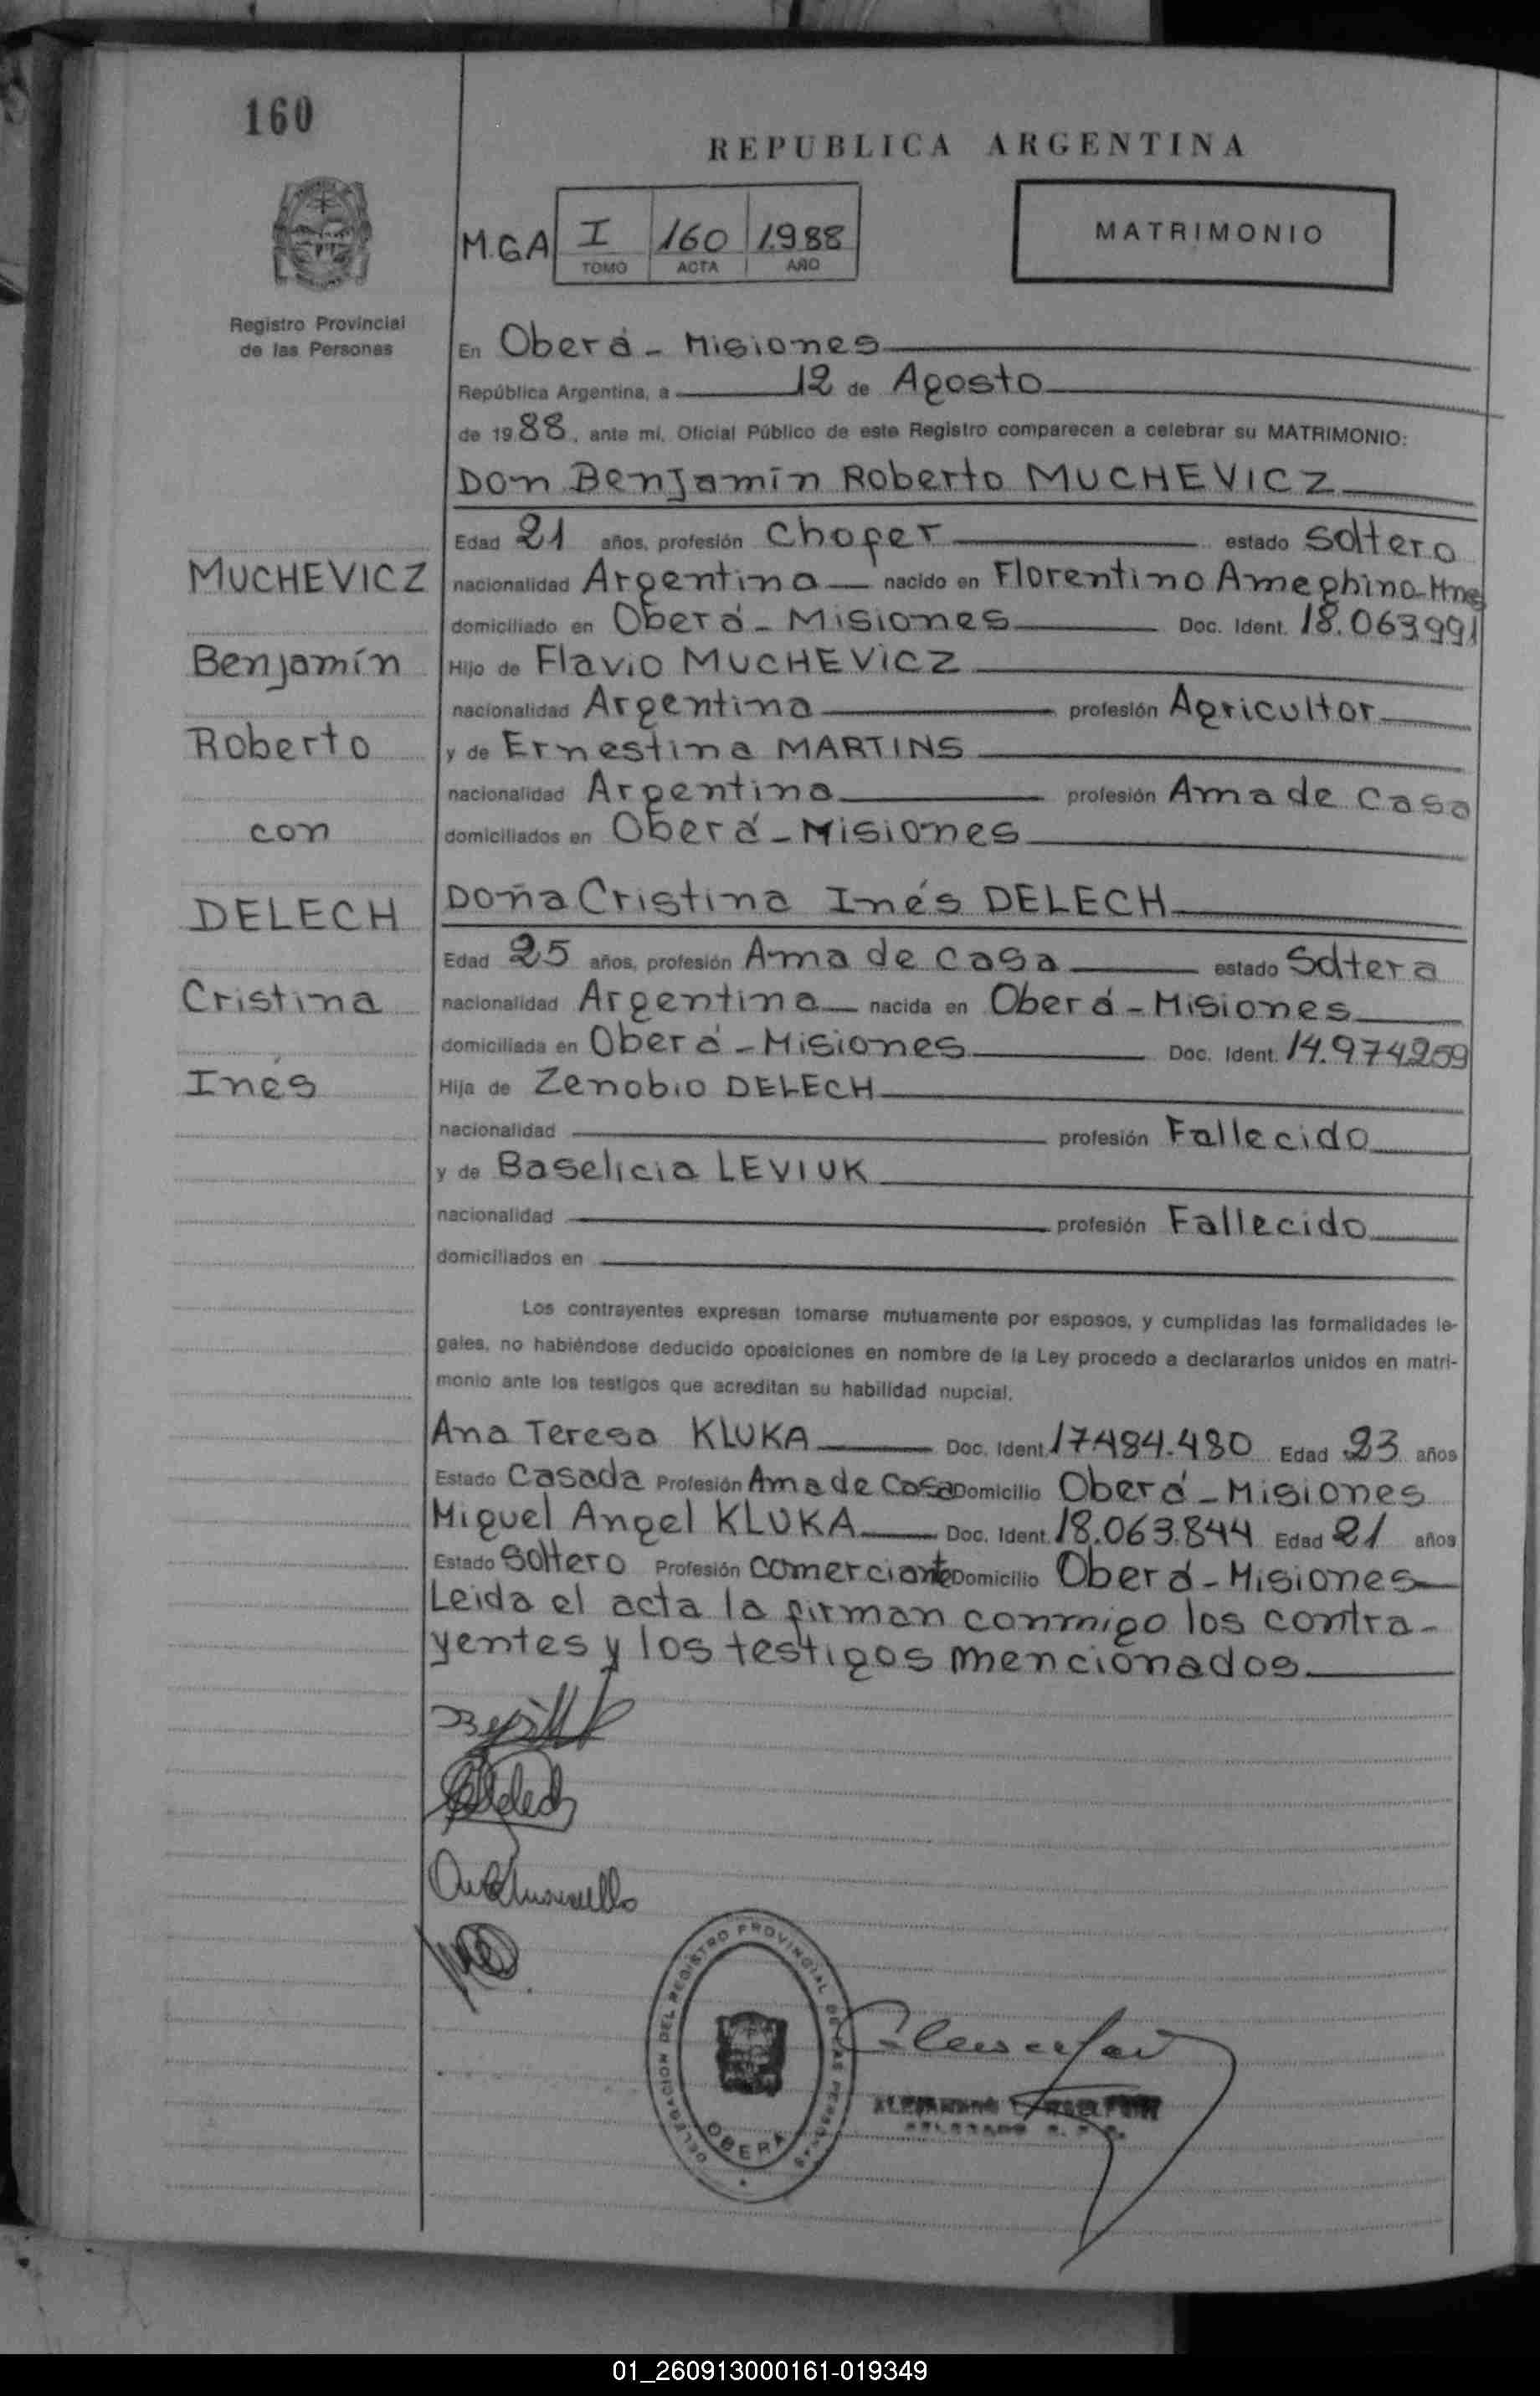 160
REPUBLICA ARGENTINA
M.G.A I 160 1.988
TOMO ACTA AÑO
MATRIMONIO
Registro Provincial
de las Personas
En Oberá - Misiones
República Argentina, a 12 de Agosto
de 19 88, ante mi, Oficial Público de este Registro comparecen a celebrar su MATRIMONIO:
Don Benjamín Roberto MUCHEVICZ
Edad 21 años, profesión Chofer estado Soltero
MUCHEVICZ
nacionalidad Argentina nacido en Florentino Ameghino-Mnes
domiciliado en Oberá - Misiones Doc. Ident. 18.063.991
Benjamín
Hijo de Flavio MUCHEVICZ
nacionalidad Argentina profesión Agricultor
Roberto
y de Ernestina MARTINS
nacionalidad Argentina profesión Ama de casa
con
domiciliados en Oberá - Misiones
DELECH
Doña Cristina Inés DELECH
Edad 25 años, profesión Ama de casa estado Soltera
Cristina
nacionalidad Argentina nacida en Oberá - Misiones
domiciliada en Oberá - Misiones Doc. Ident. 14.974259
Inés
Hija de Zenobio DELECH
nacionalidad profesión Fallecido
y de Baselicia LEVIUK
nacionalidad profesión Fallecido
domiciliados en
Los contrayentes expresan tomarse mutuamente por esposos, y cumplidas las formalidades le-
gales, no habiéndose deducido oposiciones en nombre de la Ley procedo a declararlos unidos en matri-
monio ante los testigos que acreditan su habilidad nupcial.
Ana Teresa KLUKA Doc. Ident. 17.484.480 Edad 23 años
Estado Casada Profesión Ama de Casa Domicilio Oberá - Misiones
Miguel Angel KLUKA Doc. Ident. 18.063.844 Edad 21 años
Estado Soltero Profesión comerciante Domicilio Oberá - Misiones
Leida el acta la firman conmigo los contra-
yentes y los testigos mencionados
DELEGACION DEL REGISTRO PROVINCIAL DE LAS PERSONAS
OBERA
01_260913000161-019349